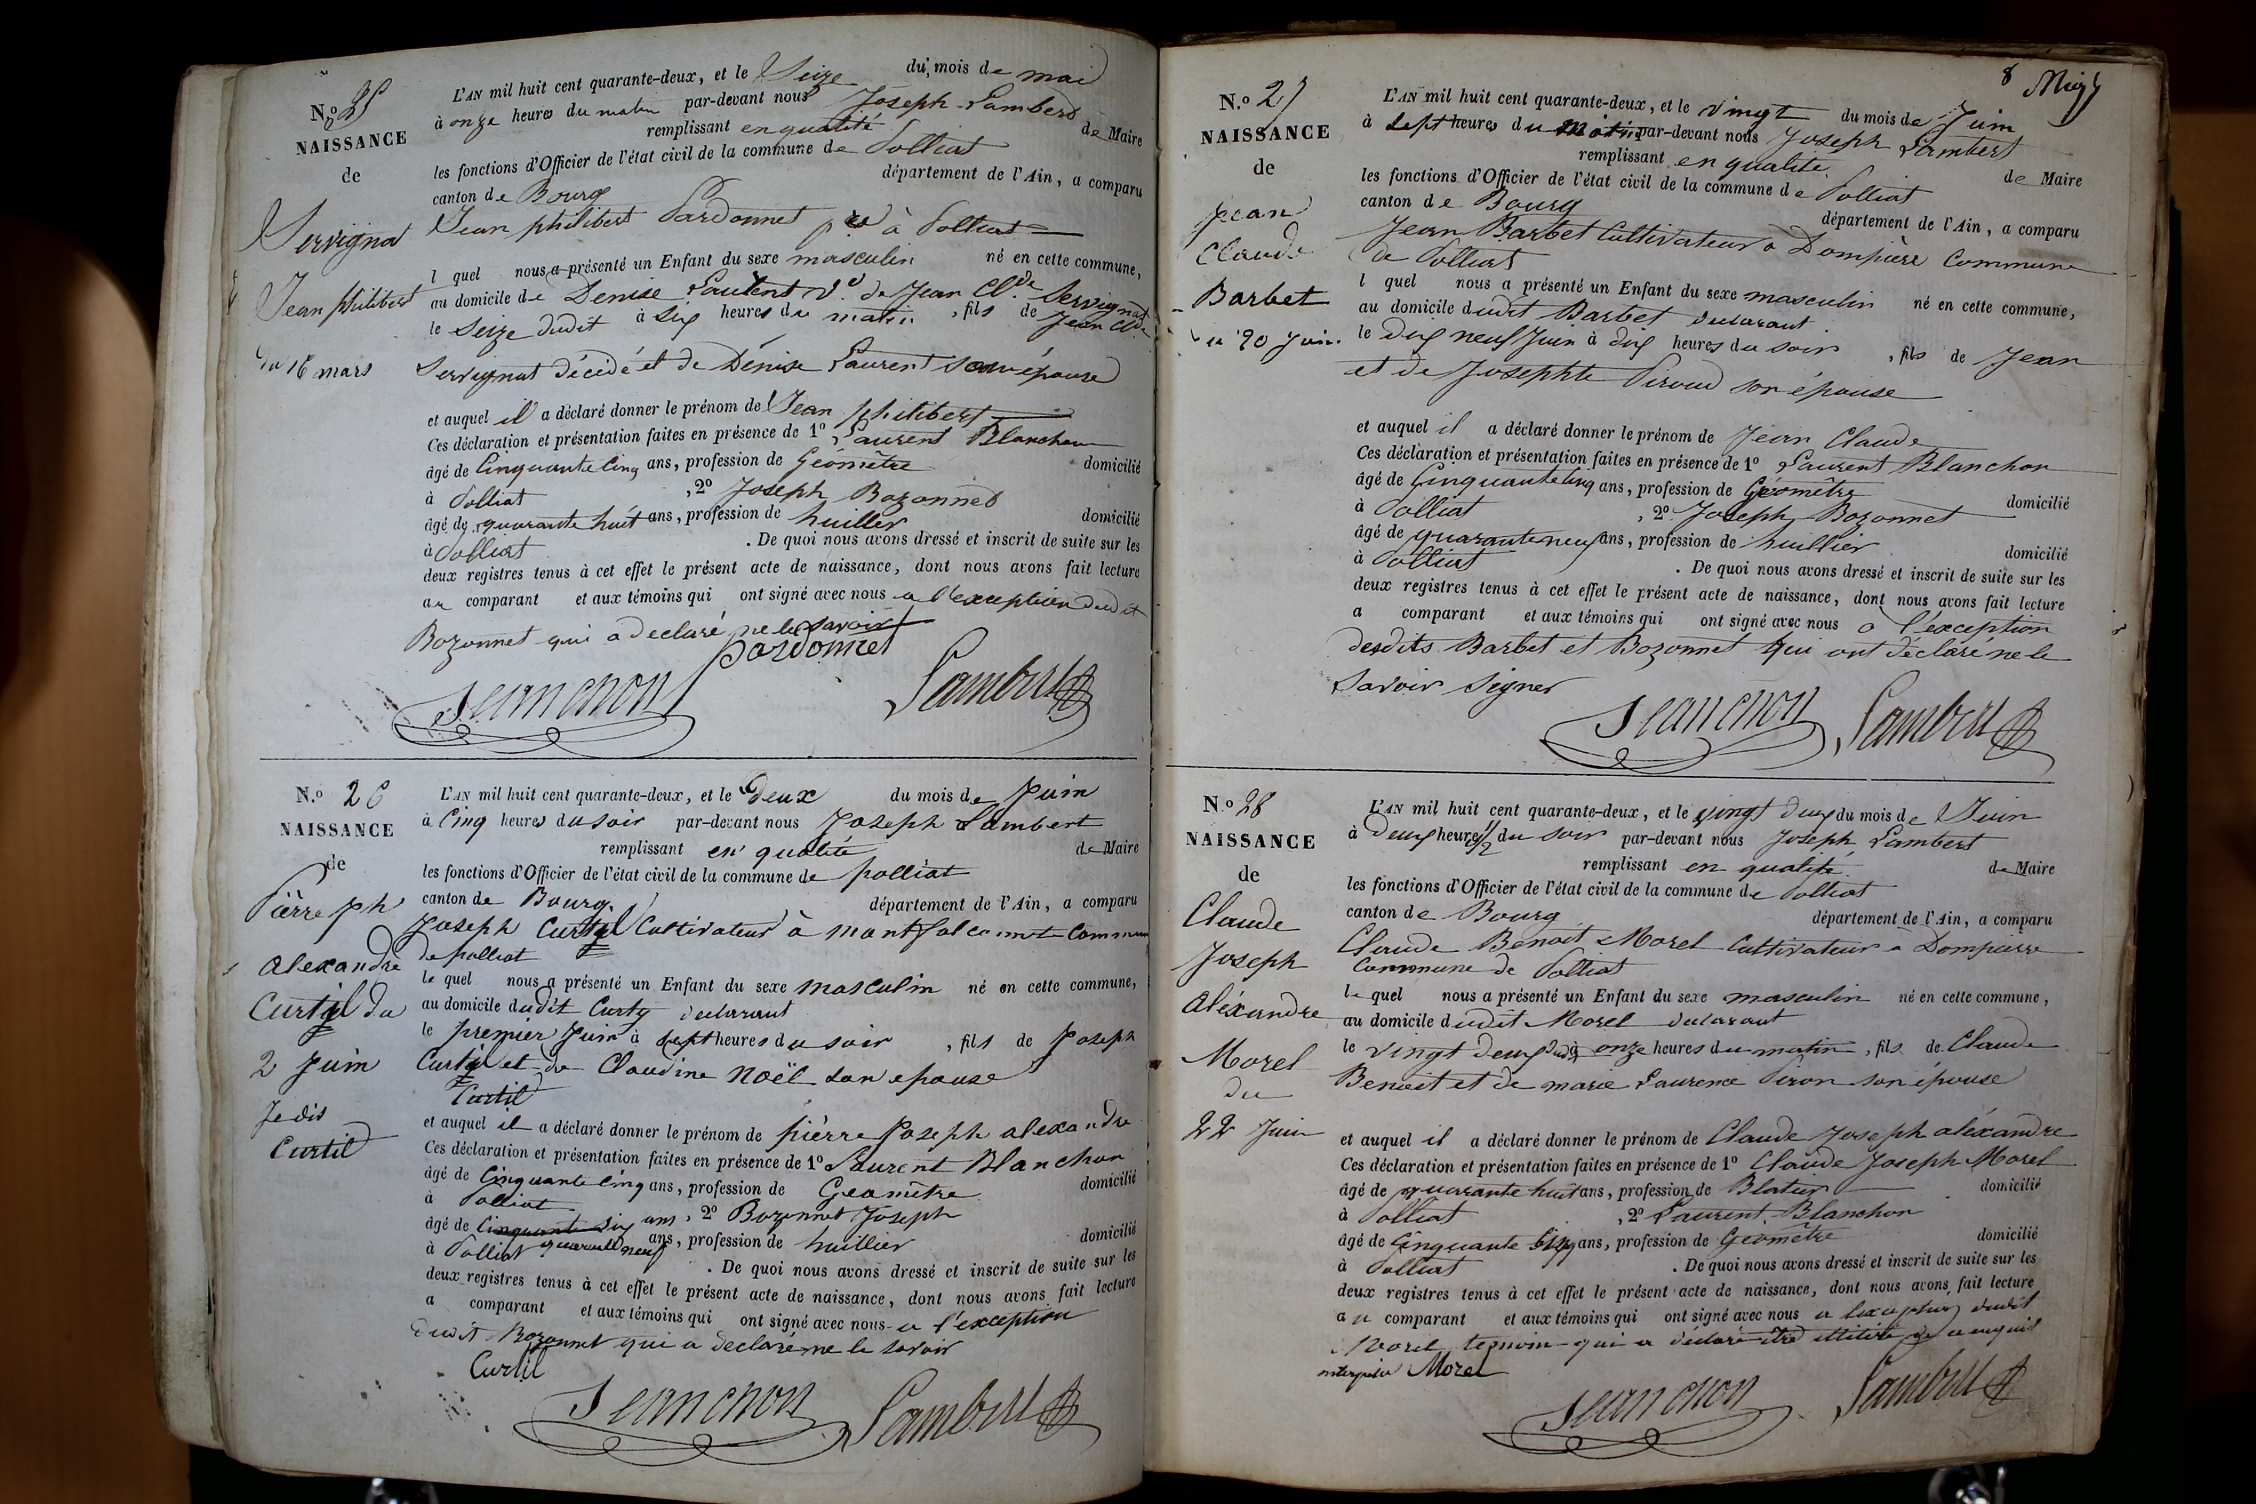 N.o 25
NAISSANCE
de
Servignat
Jean philibert
du 16 mars
L'AN mil huit cent quarante-deux, et le Seize du mois de mai
à onze heures du matin par-devant nous Joseph Lambert
remplissant en qualité de Maire
les fonctions d'Officier de l'état civil de la commune de Polliat
canton de Bourg département de l'Ain, a comparu
Jean philibert Pardonnet à Polliat
l quel nous a présenté un Enfant du sexe masculin né en cette commune,
au domicile de Denise Laurent Ve. de Jean Cl.de Servignat
le Seize dudit à six heures du matin, fils de Jean Cl.de
Servignat décédé et de Dénise Laurent son épouse
et auquel il a déclaré donner le prénom de Jean philibert
Ces déclaration et présentation faites en présence de 1o Laurent Blanchon
âgé de Cinquante Cinq ans, profession de Géomètre domicilié
à Polliat, 2o Joseph Bozonnet
âgé de quarante huit ans, profession de huillier domicilié
à Polliat. De quoi nous avons dressé et inscrit de suite sur les
deux registres tenus à cet effet le présent acte de naissance, dont nous avons fait lecture
au comparant et aux témoins qui ont signé avec nous a l'exception dudit
Bozonnet qui a declaré ne le savoir
Pardonnet
Lambert
N.o 26
NAISSANCE
de
Pièrre Jph
Alexandre
Curtil du
2 Juin
Je dis
Curtil
L'AN mil huit cent quarante-deux, et le Deux du mois de Juin
à Cinq heures du soir par-devant nous Joseph Lambert
remplissant en qualité de Maire
les fonctions d'Officier de l'état civil de la commune de polliat
canton de Bourg département de l'Ain, a comparu
Joseph Curtil Cultivateur à montfalconnet Commune
de polliat
le quel nous a présenté un Enfant du sexe masculin né en cette commune,
au domicile dudit Curty declarant
le premier Juin à sept heures du soir, fils de Joseph
Curtil et de Claudine Noël son epouse
Curtil
et auquel il a déclaré donner le prénom de pièrre Joseph alexandre
Ces déclaration et présentation faites en présence de 1o Laurent Blanchon
âgé de Cinquante Cinq ans, profession de Geomètre domicilié
à Polliat
âgé de Cinquante six ans, 2o Bozonnet Joseph
à Polliat quarante neuf ans, profession de huillier domicilié
. De quoi nous avons dressé et inscrit de suite sur les
deux registres tenus à cet effet le présent acte de naissance, dont nous avons fait lecture
a comparant et aux témoins qui ont signé avec nous a l'exception
dudit Bozonnet qui a declaré ne le savoir
Curtil
Lambert
8
N.o 27
NAISSANCE
de
Jean
Claude
Barbet
du 20 Juin
L'AN mil huit cent quarante-deux, et le vingt du mois de Juin
à sept heures du matin par-devant nous Joseph Lambert
remplissant en qualité de Maire
les fonctions d'Officier de l'état civil de la commune de Polliat
canton de Bourg département de l'Ain, a comparu
Jean Barbet Cultivateur a Dompière Commune
de Polliat
l quel nous a présenté un Enfant du sexe masculin né en cette commune,
au domicile dudit Barbet declarant
le dix neuf Juin à dix heures du soir, fils de Jean
et de Josephte Piroud son épouse
et auquel il a déclaré donner le prénom de Jean Claude
Ces déclaration et présentation faites en présence de 1o Laurent Blanchon
âgé de Cinquante Cinq ans, profession de Géomètre domicilié
à Polliat, 2o Joseph Bozonnet
âgé de quarante neuf ans, profession de huillier domicilié
à Polliat. De quoi nous avons dressé et inscrit de suite sur les
deux registres tenus à cet effet le présent acte de naissance, dont nous avons fait lecture
a comparant et aux témoins qui ont signé avec nous a l'exception
desdits Barbet et Bozonnet qui ont déclaré ne le
savoir signer
Lambert
N.o 28
NAISSANCE
de
Claude
Joseph
Aléxandre
Morel
du
22 Juin
L'AN mil huit cent quarante-deux, et le vingt deux du mois de Juin
à deux heures 1/2 du soir par-devant nous Joseph Lambert
remplissant en qualité de Maire
les fonctions d'Officier de l'état civil de la commune de Polliat
canton de Bourg département de l'Ain, a comparu
Claude Benoit Morel Cultivateur a Dompierre
Commune de Polliat
le quel nous a présenté un Enfant du sexe masculin né en cette commune,
au domicile dudit Morel declarant
le vingt deux dudit à onze heures du matin, fils de Claude
Benoit et de marie Laurence Piron son épouse
et auquel il a déclaré donner le prénom de Claude Joseph aléxandre
Ces déclaration et présentation faites en présence de 1o Claude Joseph Morel
âgé de quarante huit ans, profession de Blatier domicilié
à Polliat, 2o Laurent Blanchon
âgé de Cinquante Cinq ans, profession de Geomètre domicilié
à Polliat. De quoi nous avons dressé et inscrit de suite sur les
deux registres tenus à cet effet le présent acte de naissance, dont nous avons fait lecture
au comparant et aux témoins qui ont signé avec nous a l'exception dudit
Morel temoin qui a déclaré être illitéré de ce enquis
interpelé Morel
Lambert